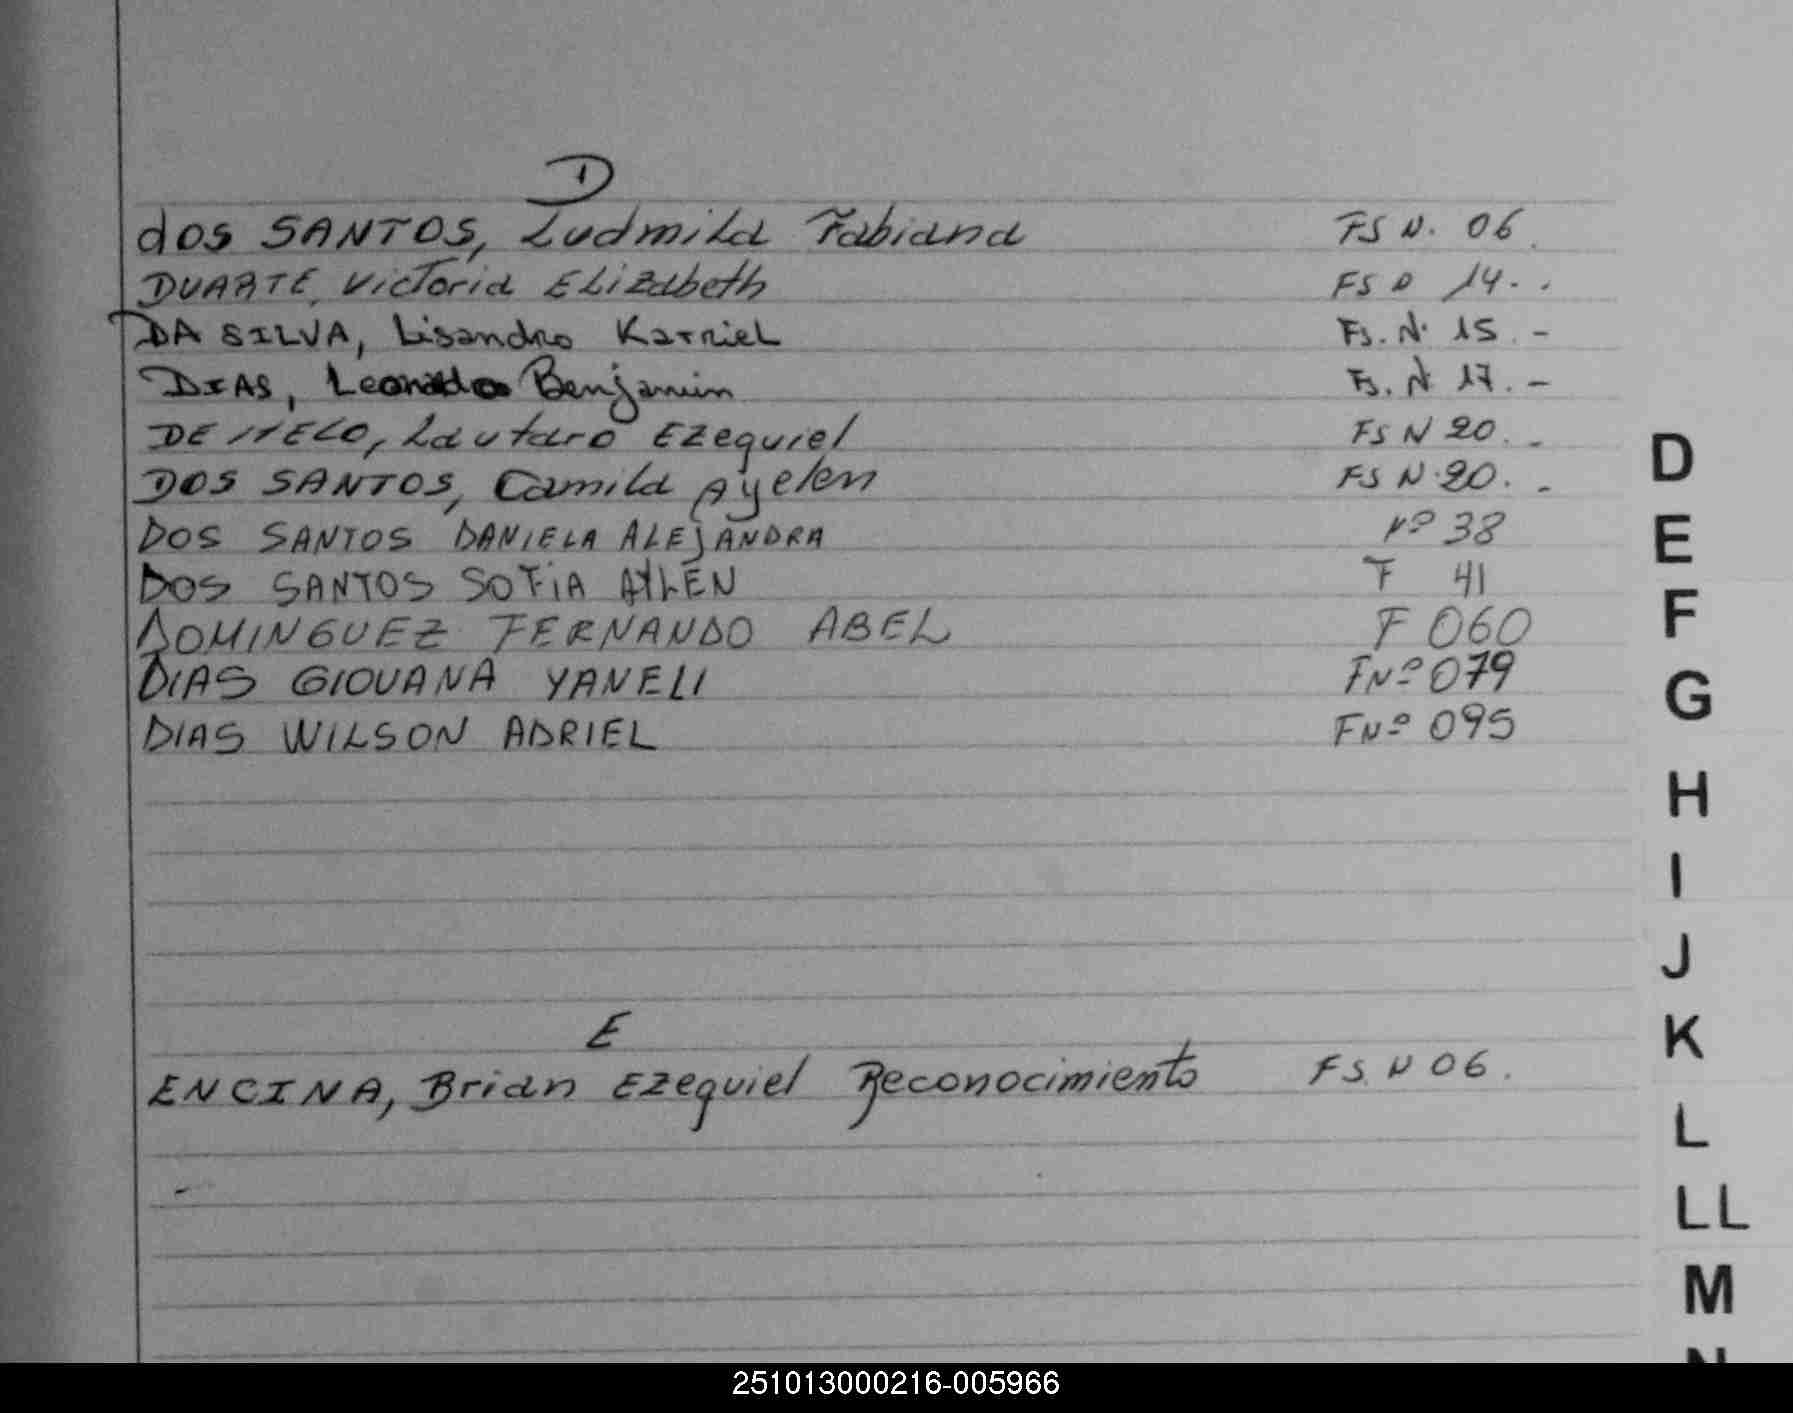 D
dos SANTOS, Ludmila Fabiana FS N. 06.
DUARTE, Victoria Elizabeth FS N 14. .
DA SILVA, Lisandro Karriel Fs. Nº 15. -
DIAS, Leonardo Benjamin Fs. Nº 17. -
DE MELO, Lautaro Ezequiel FS N 20. -
DOS SANTOS, Camila Ayelen FS N. 20. -
DOS SANTOS DANIELA ALEJANDRA Nº 38
DOS SANTOS SOFIA AYLEN F 41
DOMINGUEZ FERNANDO ABEL F 060
DIAS GIOVANA YANELI FNº 079
DIAS WILSON ADRIEL FNº 095
E
ENCINA, Brian Ezequiel Reconocimiento FS. N 06.
D
E
F
G
H
I
J
K
L
LL
M
251013000216-005966